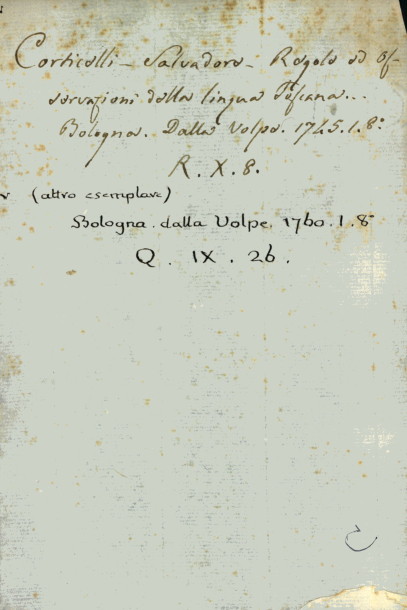 Corticelli - Salvadore - Regole ed os-
servazioni della lingua Toscana...
Bologna. Dalla Volpe. 1745. 1. 8º
R. X. 8.
(altro esemplare)
Bologna. dalla Volpe. 1760. 1. 8º
Q. IX. 26.